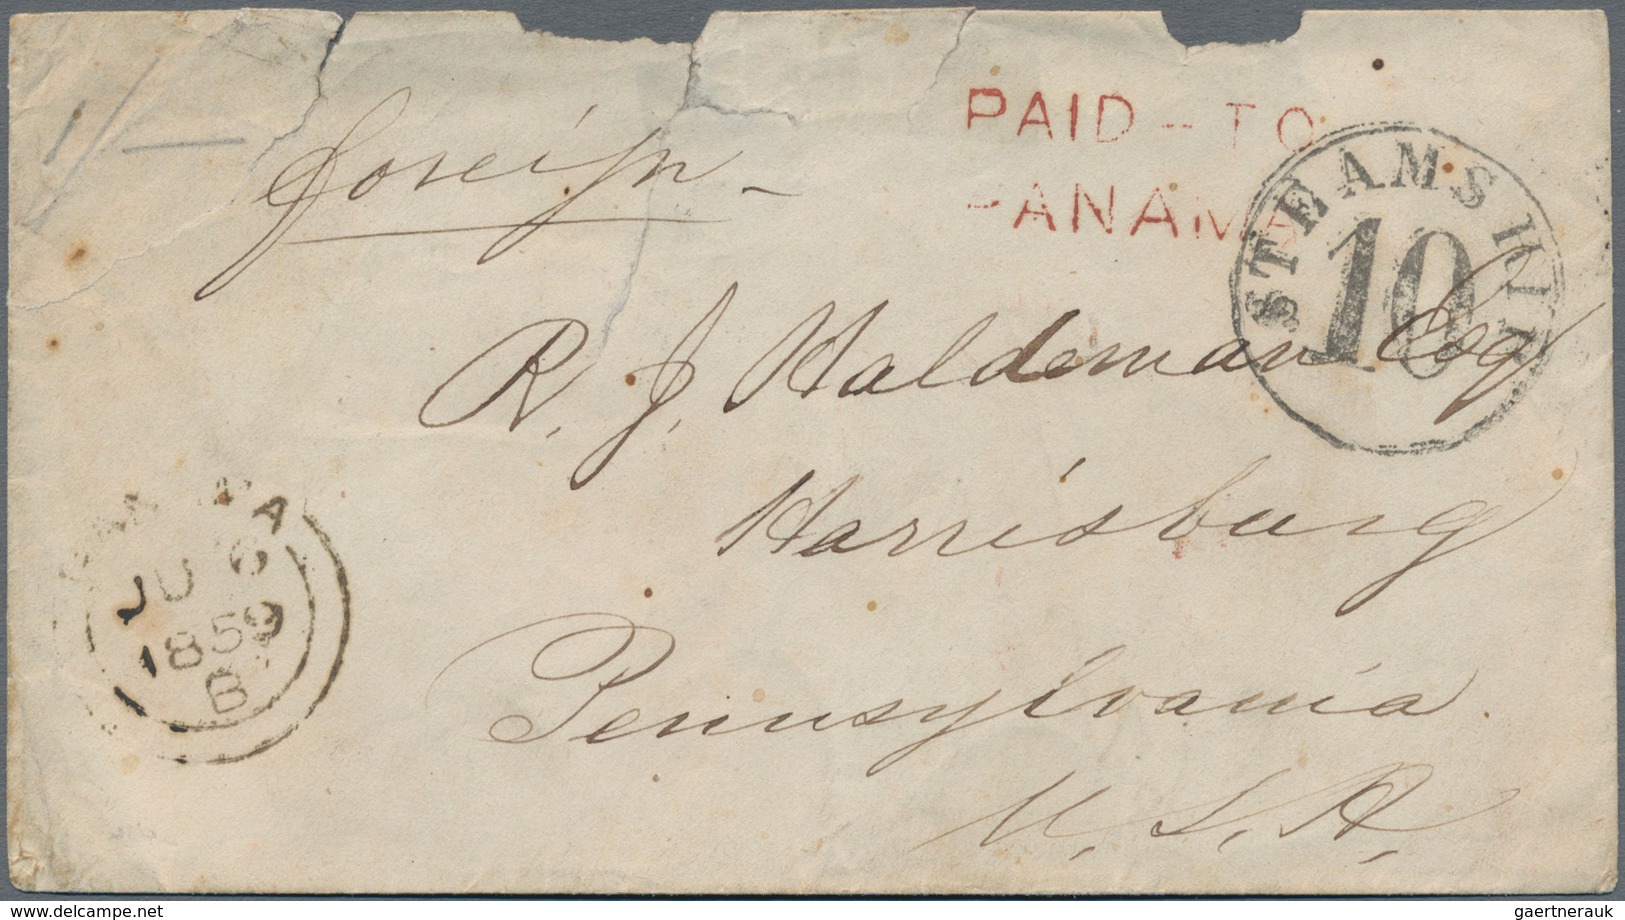 1/-
foreign -
PAID - TO
PANAMA
STEAMSHIP
10
R. J. Haldeman Esq
Harrisburg
Pennsylvania
U.S.A.
PANAMA
JU 6
1859
B
www.delcampe.net
gaertnerauk